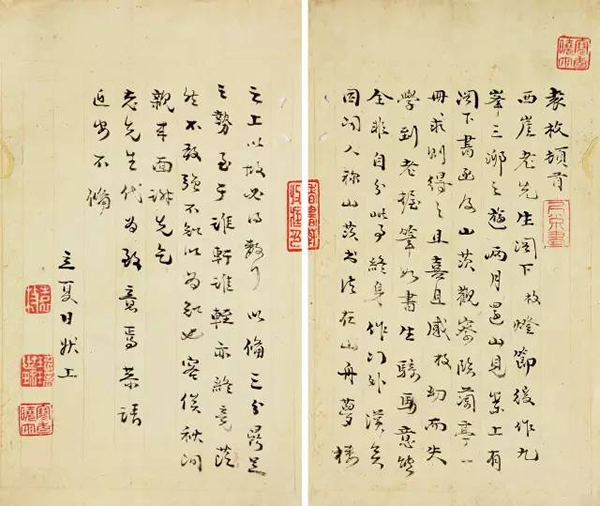 袁枚頓首
西崖老先生閣下放燈節後作九
峯三泖之遊兩月還山見案上有
閣下書函及山茨觀察臨蘭亭一
冊求則得之且喜且感枚幼而失
學到老握筆如書生騎馬意
全非自分此事終身作門外漢矣
因聞人稱山茨書法在山舟夢樓
之上以故必得數行以備三分鼎足
之勢至于誰軒誰輊亦終竟茫
然不敢強不知以為知也容俟秋間
親來面謝先乞
老先生代為致意焉恭請
近安不備
立夏日狀上